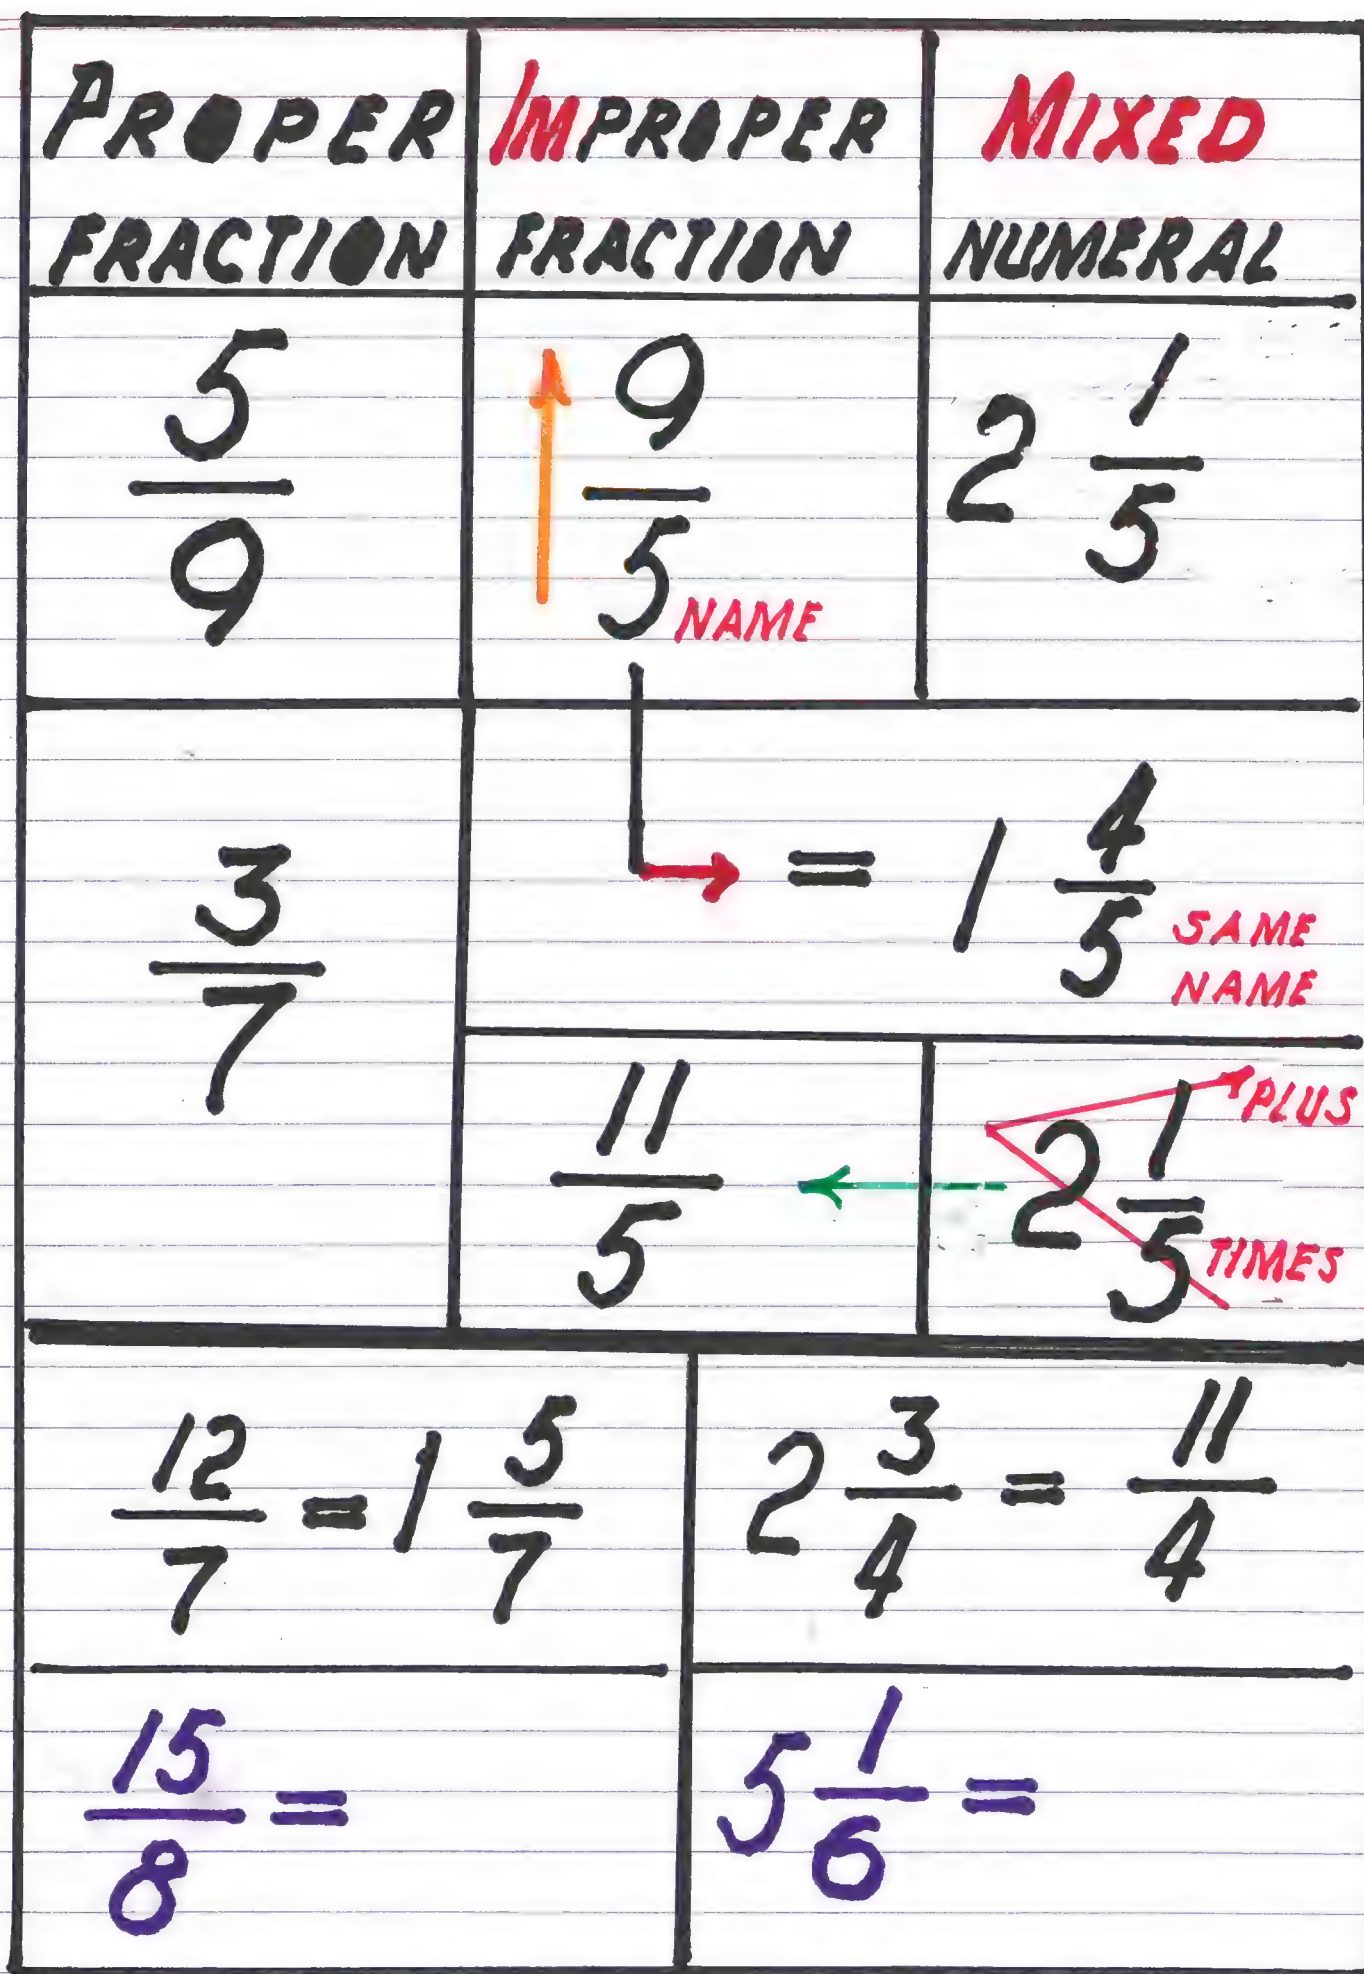 PROPER FRACTION
IMPROPER FRACTION
MIXED NUMERAL
5/9
9/5 NAME
2 1/5
3/7
= 1 4/5 SAME NAME
11/5
2 1/5 PLUS TIMES
12/7 = 1 5/7
2 3/4 = 11/4
15/8 =
5 1/6 =